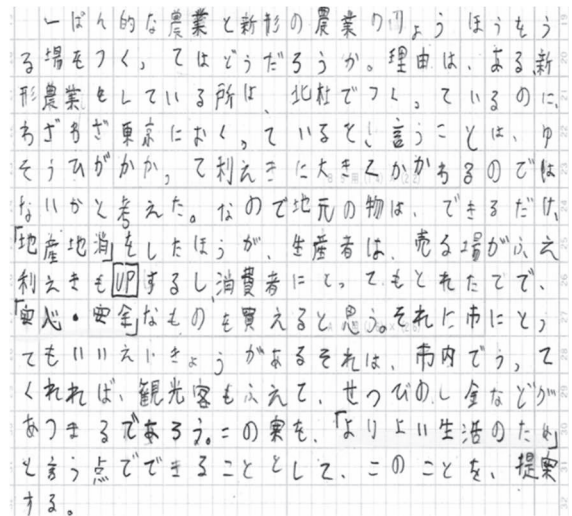 一ぱん的な農業と新形の農業の両ょうほうをう
る場をつくってはどうだろうか。理由は、ある新
形農業をしている所は、北杜でつくっているのに、
わざわざ東京におくっていると、言うことは、ゆ
そうひがかかって利えきに大きくかかわるのでは
ないかと考えた。なので地元の物は、できるだけ、
「地産地消」をしたほうが、生産者は、売る場がふえ
利えきもUPするし、消費者にとってもとれたてで、
「安心・安全」なものを買えると思う。それに市にとっ
てもいいえいきょうがあるそれは、市内でうって
くれれば、観光客もふえて、せつびのし金などが
あつまるであろう。この案を、「よりよい生活のため」
と言う点でできることとして、このことを、提案
する。